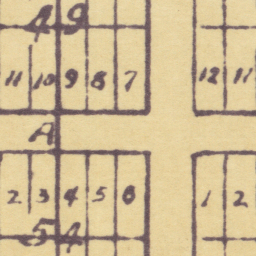 49
11 10 9 8 7 12 11
A
2 3 4 5 6 1 2
54